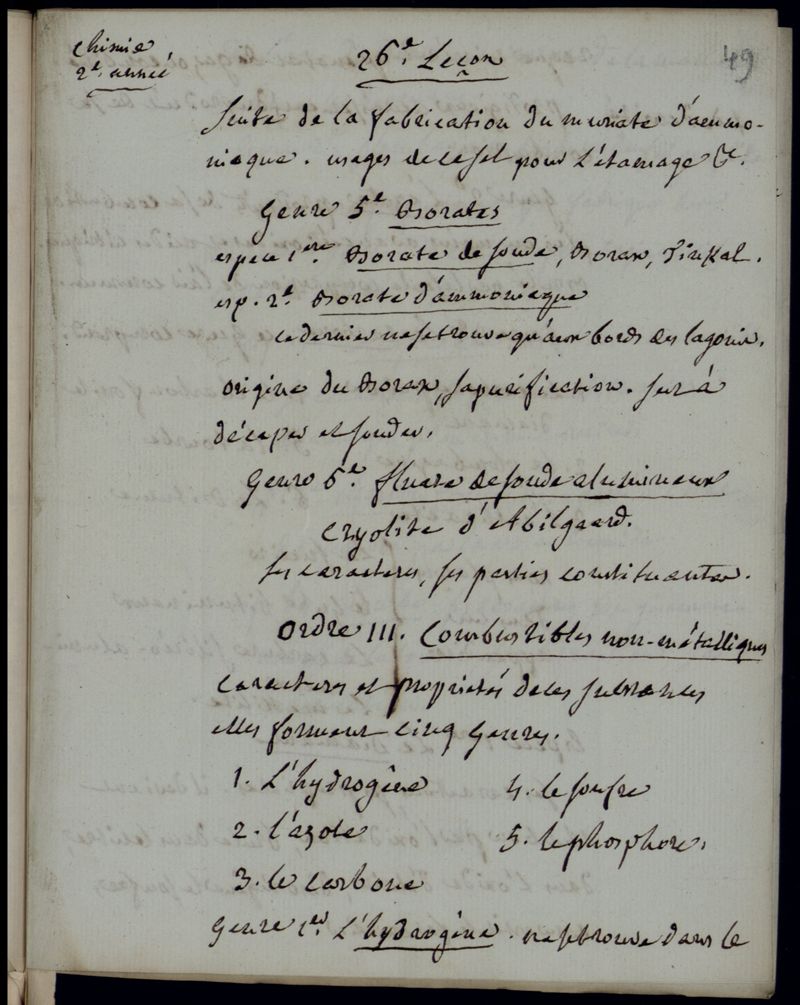 Chimie
2e. année
26e. Leçon
49
Suite de la fabrication du muriate d'ammo-
niaque. usages de ce sel pour l'étamage &c.
Genre 5e. Borates
espece 1ere Borate de soude, Borax, Tinkal.
esp. 2e. Borate d'ammoniaque
ce dernier ne se trouve qu'aux bords des lagonis.
origine du Borax, sa purification. sert à
décaper et souder.
Genre 6e. fluate de soude alumineux
Cryolite d'Abilgaard.
ses caracteres, ses parties constituantes.
Ordre III. Combustibles non-métalliques
Caracteres et propriétés de ces substances
elles forment cinq Genres.
1. L'hydrogêne
4. le soufre
2. l'azote
5. le phosphore.
3. le carbone
Genre 1er. L'hydrogêne. ne se trouve dans le